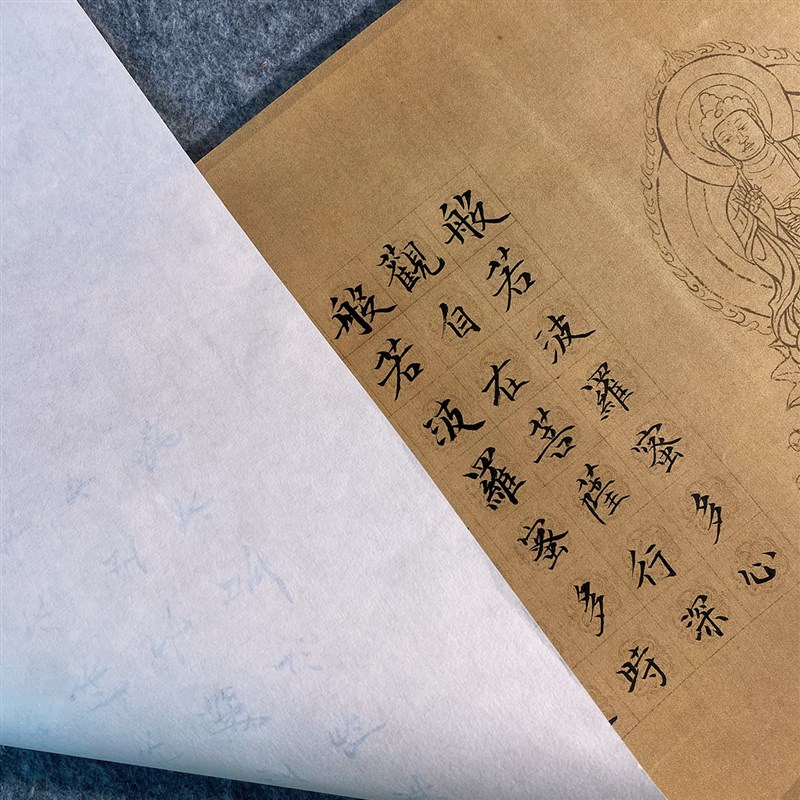 般若波羅蜜多心
觀自在菩薩行深
般若波羅蜜多時